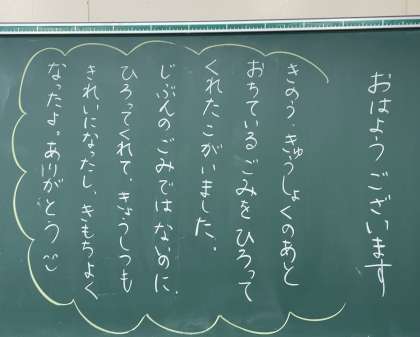 おはようございます
きのう、きゅうしょくのあと
おちているごみをひろって
くれたこがいました。
じぶんのごみではないのに、
ひろってくれて、きょうしつも
きれいになったし、きもちよく
なったよ。ありがとう